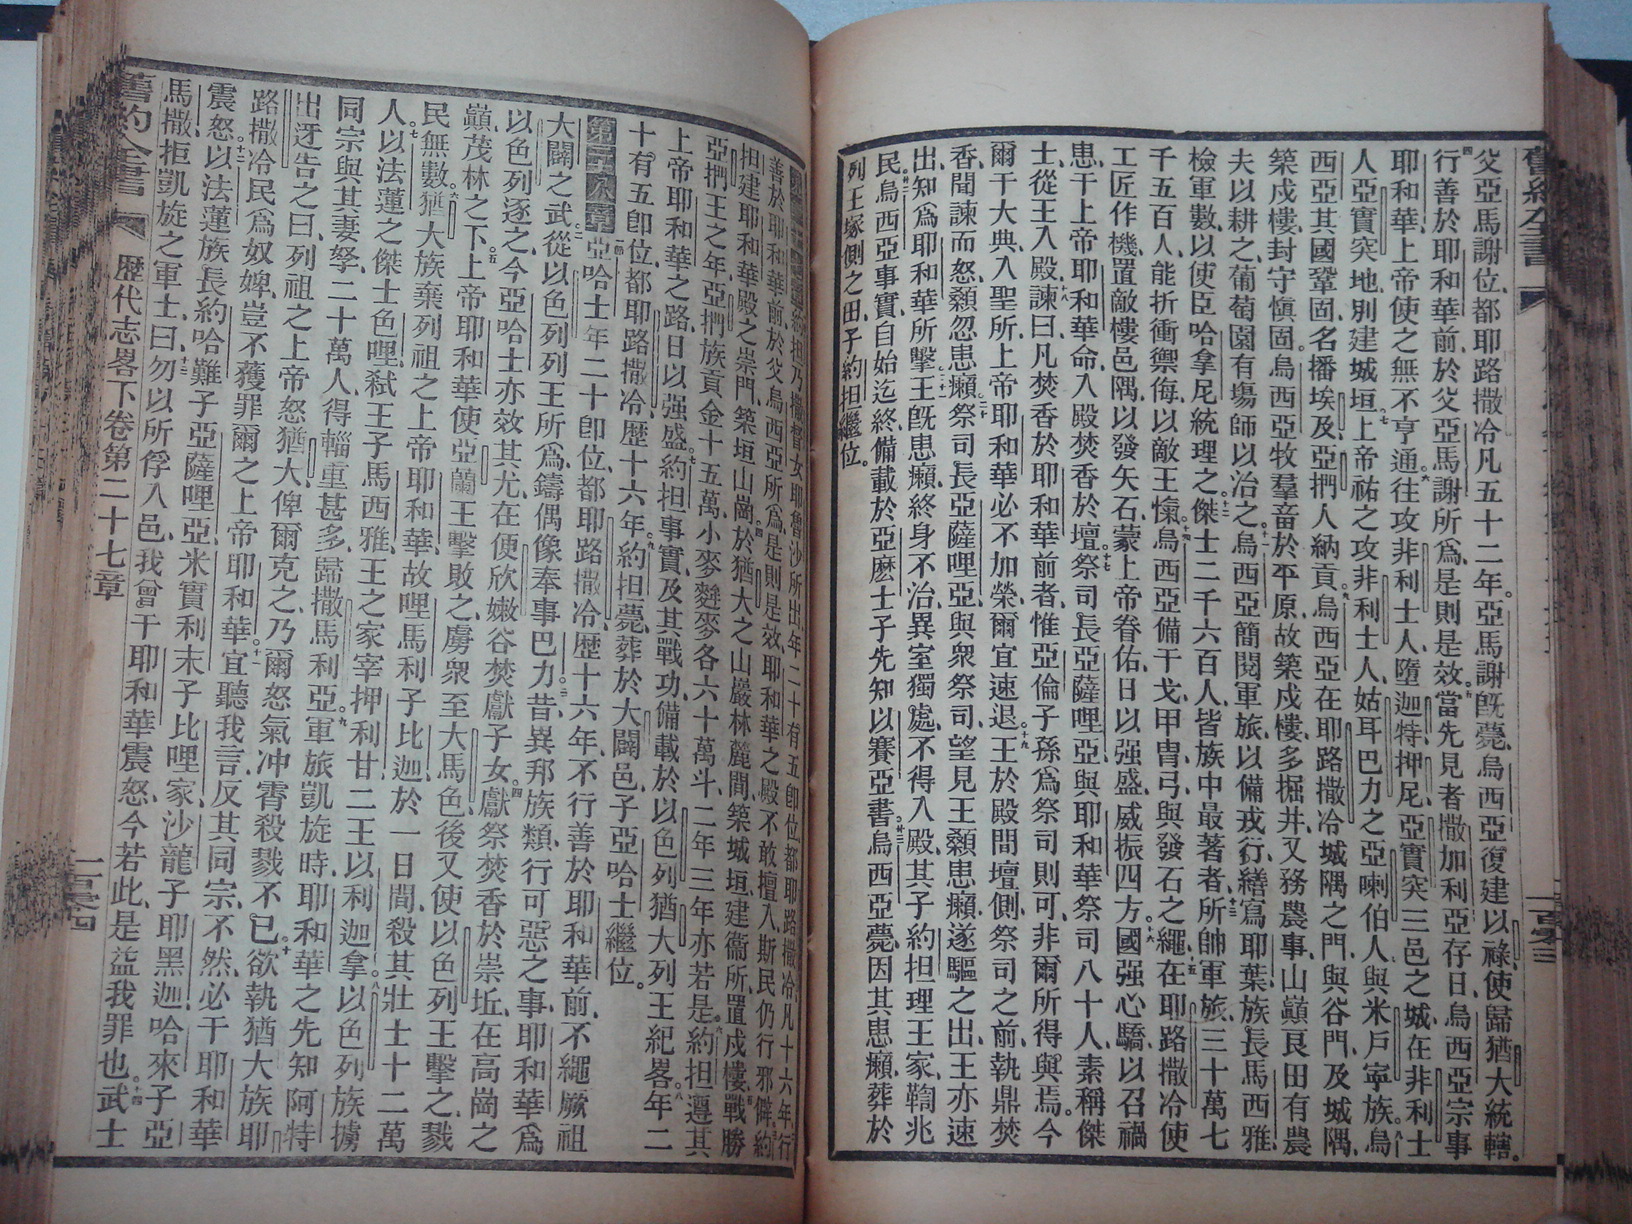 父亞馬謝位、都耶路撒冷、凡五十二年。亞馬謝旣薨、烏西亞復建以祿、使歸猶大統轄。
行善於耶和華前、於父亞馬謝所爲、是則是效。當先見者撒加利亞存日、烏西亞宗事
耶和華上帝、使之無不亨通。往攻非利士人、墮迦特、押尼、亞實突三邑之城、在非利士
人亞實突地、別建城垣。上帝祐之、攻非利士人、姑耳巴力之亞喇伯人、與米戶寧族。烏
西亞其國鞏固、名播埃及、亞捫人納貢。烏西亞在耶路撒冷城隅之門、與谷門、及城隅、
築戍樓、封守愼固。烏西亞牧羣畜於平原、故築戍樓、多掘井、又務農事、山巔良田有農
夫以耕之、葡萄園有塲師以治之。烏西亞簡閱軍旅、以備戎行、繕寫耶葉、族長馬西雅、
檢軍數、以使臣哈拿尼統理之。傑士二千六百人、皆族中最著者、所帥軍旅三十萬七
千五百人、能折衝禦侮、以敵王愾。烏西亞備干戈、甲冑、弓、與發石之繩。在耶路撒冷使
工匠作機、置敵樓邑隅、以發矢石、蒙上帝眷佑、日以强盛、威振四方。國强心驕、以召禍
患、干上帝耶和華命、入殿焚香於壇。祭司長亞薩哩亞、與耶和華祭司八十人、素稱傑
士、從王入殿、諫曰、凡焚香於耶和華前者、惟亞倫子孫爲祭司則可、非爾所得與焉、今
爾干大典、入聖所、上帝耶和華必不加榮、爾宜速退。王於殿間壇側、祭司之前、執鼎焚
香、聞諫而怒、顙忽患癩。祭司長亞薩哩亞、與衆祭司、望見王顙患癩、遂驅之出、王亦速
出、知爲耶和華所擊。王旣患癩、終身不治、異室獨處、不得入殿、其子約担理王家、鞫兆
民。烏西亞事實、自始迄終、備載於亞麽士子先知以賽亞書。烏西亞薨、因其患癩、葬於
列王塚側之田、子約担繼位。
善於耶和華前、於父烏西亞所爲、是則是效、耶和華之殿、不敢擅入、斯民仍行邪僻。約
担建耶和華殿之崇門、築垣山崗、於猶大之山巖林麓間、築城垣、建衞所、置戍樓、戰勝
亞捫王之年、亞捫族貢金十五萬、小麥麰麥各六十萬斗、二年三年亦若是。約担遵其
上帝耶和華之路、日以强盛。約担事實、及其戰功、備載於以色列猶大列王紀畧。年二
十有五卽位、都耶路撒冷、歷十六年。約担薨、葬於大闢邑、子亞哈士繼位。
第二十八章 亞哈士年二十卽位、都耶路撒冷、歷十六年、不行善於耶和華前、不繩厥祖
大闢之武。從以色列列王所爲、鑄偶像、奉事巴力。昔異邦族類、行可惡之事、耶和華爲
以色列逐之、今亞哈士亦效其尤、在便欣嫩谷焚獻子女。獻祭焚香於崇坵、在高崗之
巔、茂林之下。上帝耶和華使亞蘭王擊敗之、虜衆至大馬色、後又使以色列王擊之、戮
民無數。猶大族棄列祖之上帝耶和華、故哩馬利子比迦於一日間、殺其壯士十二萬
人。以法蓮之傑士色哩、弒王子馬西雅、王之家宰押利甘、二王以利迦拿。以色列族擄
同宗、與其妻孥二十萬人、得輜重甚多、歸撒馬利亞。軍旅凱旋時、耶和華之先知阿特
出迓告之曰、列祖之上帝怒猶大、俾爾克之、乃爾怒氣冲霄、殺戮不已。欲執猶大族耶
路撒冷民爲奴婢、豈不獲罪爾之上帝耶和華。宜聽我言、反其同宗、不然、必干耶和華
震怒。以法蓮族長約哈難子亞薩哩亞、米實利末子比哩家、沙龍子耶黑迦、哈來子亞
馬撒、拒凱旋之軍士。曰、勿以所俘入邑、我曾干耶和華震怒、今若此、是益我罪也。武士
舊約全書 歷代志畧下卷第二十七章 一百零四
舊約全書
一百零三